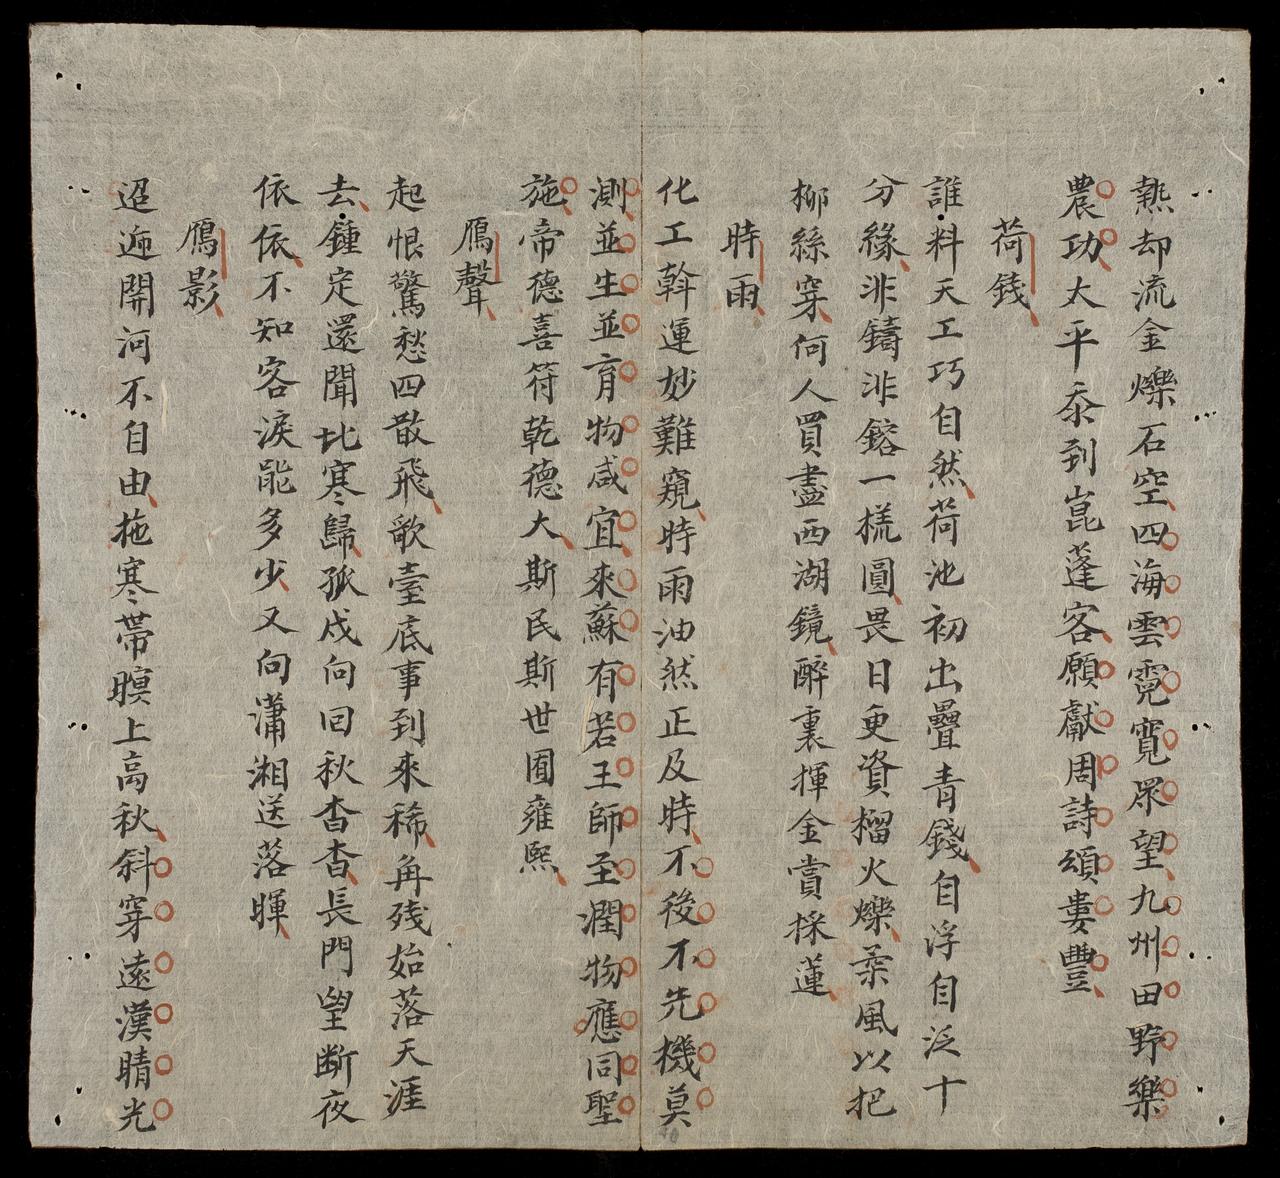 熱却流金爍石空四海雲霓寬眾望九州田野樂
農功太平泰到崑蓬客願獻周詩頌婁豐
荷錢
誰料天工巧自然荷池初出疊青錢自浮自泛十
分緣非鑄非鎔一㨾圓畏日更資榴火爍柔風以把
柳絲穿何人買盡西湖鏡醉裏揮金賞採蓮
時雨
化工斡運妙難窺時雨油然正及時不後不先機莫
測並生並育物咸宜來蘇有若王師至潤物應同聖
施帝德喜符乾德大斯民斯世囿雍熙
鴈聲
起恨驚愁四散飛歌臺底事到來稀角殘始落天涯
去鍾定還聞北塞歸孤戍向回秋杳杳長門望斷夜
依依不知客淚能多少又向瀟湘送落暉
鴈影
迢遞關河不自由拖寒帶暝上高秋斜穿遠漢晴光